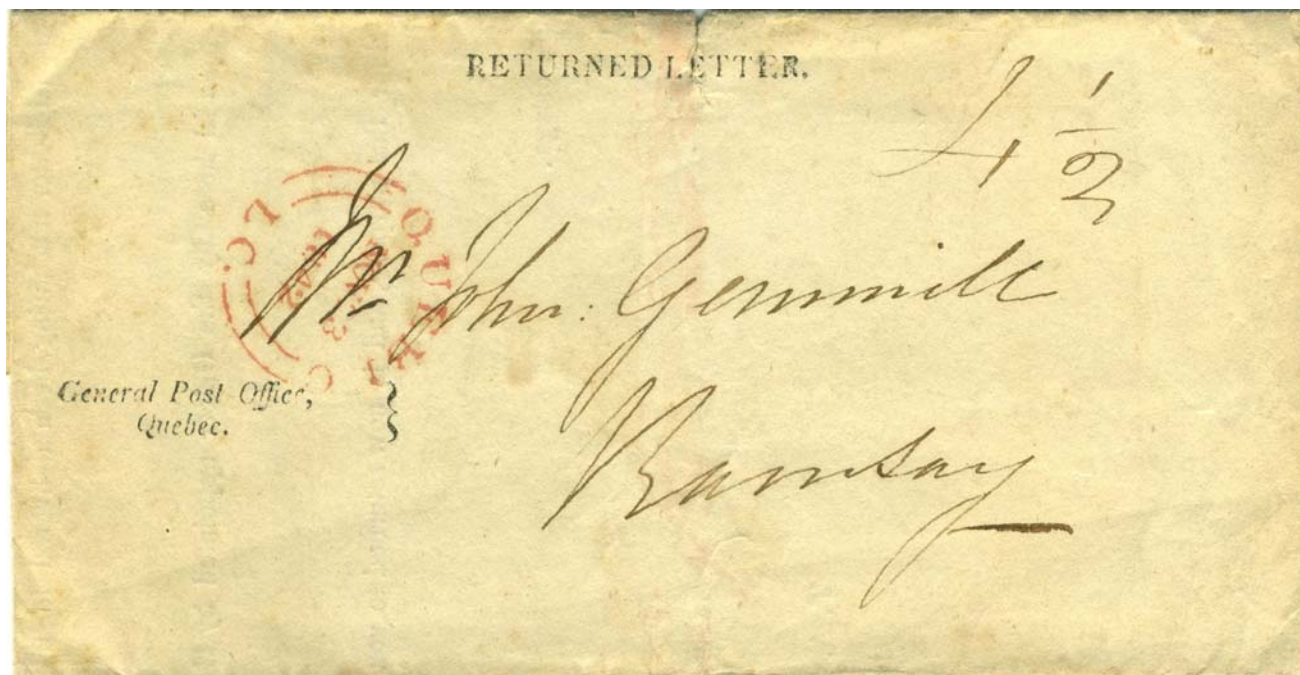 RETURNED LETTER.
4 1/2
QUEBEC
L.C.
Mr. John: Gemmill
General Post Office,
Quebec.
Ramsay